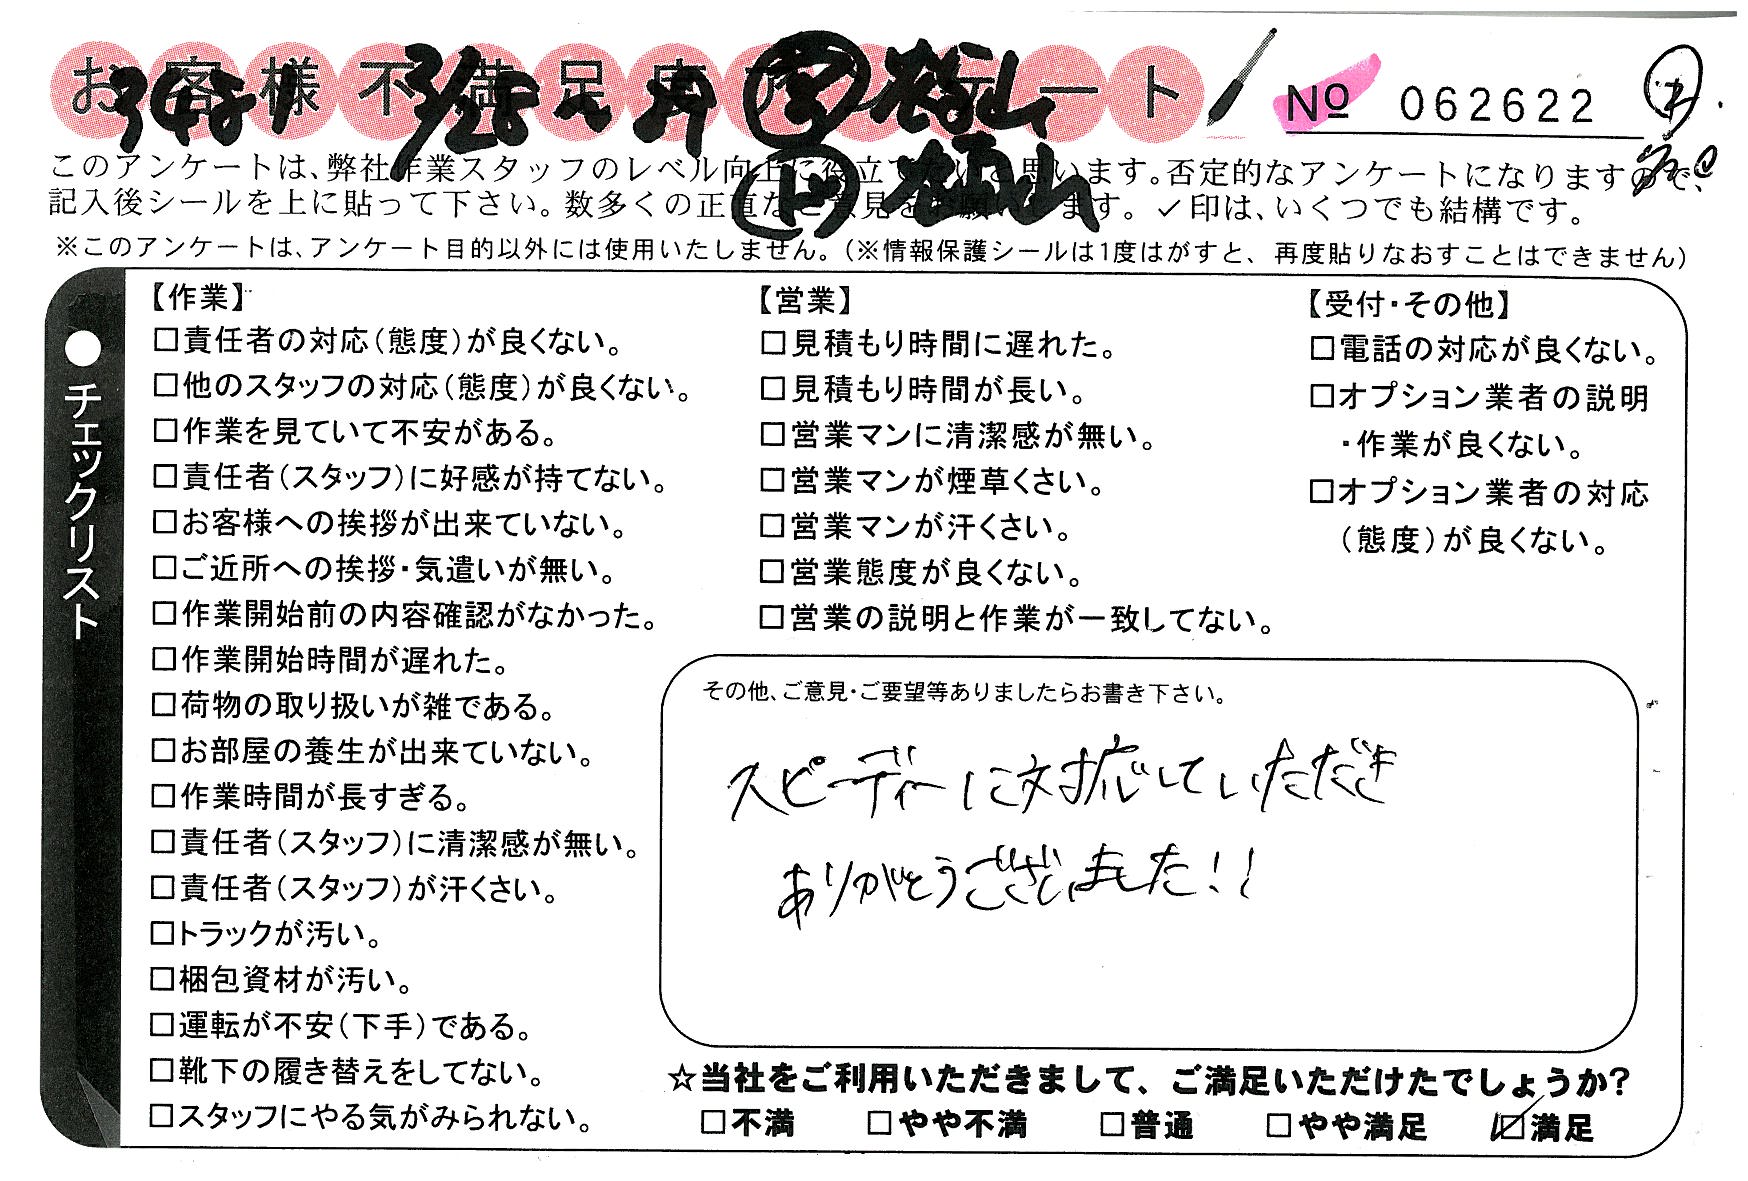 お客様不満足度アンケート
№ 062622
このアンケートは、弊社作業スタッフのレベル向上に役立てたいと思います。否定的なアンケートになりますので、
記入後シールを上に貼って下さい。数多くの正直なご意見をお願いします。✓印は、いくつでも結構です。
※このアンケートは、アンケート目的以外には使用いたしません。(※情報保護シールは1度はがすと、再度貼りなおすことはできません)
●チェックリスト
【作業】
□責任者の対応(態度)が良くない。
□他のスタッフの対応(態度)が良くない。
□作業を見ていて不安がある。
□責任者(スタッフ)に好感が持てない。
□お客様への挨拶が出来ていない。
□ご近所への挨拶・気遣いが無い。
□作業開始前の内容確認がなかった。
□作業開始時間が遅れた。
□荷物の取り扱いが雑である。
□お部屋の養生が出来ていない。
□作業時間が長すぎる。
□責任者(スタッフ)に清潔感が無い。
□責任者(スタッフ)が汗くさい。
□トラックが汚い。
□梱包資材が汚い。
□運転が不安(下手)である。
□靴下の履き替えをしてない。
□スタッフにやる気がみられない。
【営業】
□見積もり時間に遅れた。
□見積もり時間が長い。
□営業マンに清潔感が無い。
□営業マンが煙草くさい。
□営業マンが汗くさい。
□営業態度が良くない。
□営業の説明と作業が一致してない。
【受付・その他】
□電話の対応が良くない。
□オプション業者の説明
・作業が良くない。
□オプション業者の対応
(態度)が良くない。
その他、ご意見・ご要望等ありましたらお書き下さい。
スピーディーに対応していただき
ありがとうございました!!
☆当社をご利用いただきまして、ご満足いただけたでしょうか?
□不満 □やや不満 □普通 □やや満足 ☑満足